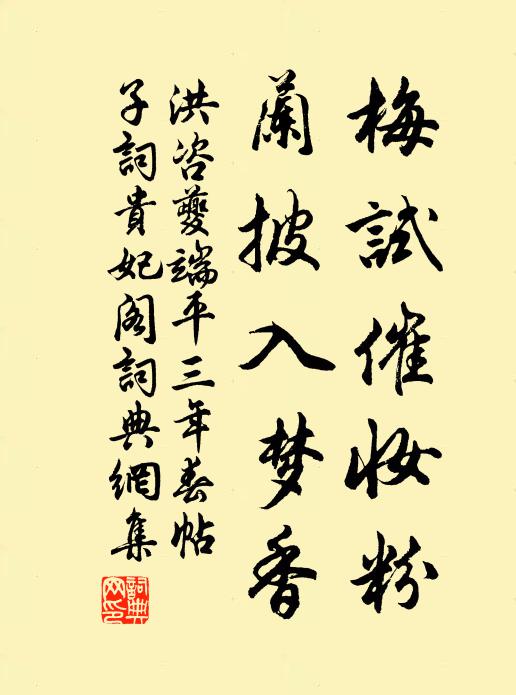 梅試催妝粉
蘭披入梦香
洪咨夔端平三年春帖
子詞貴妃阁詞典網集